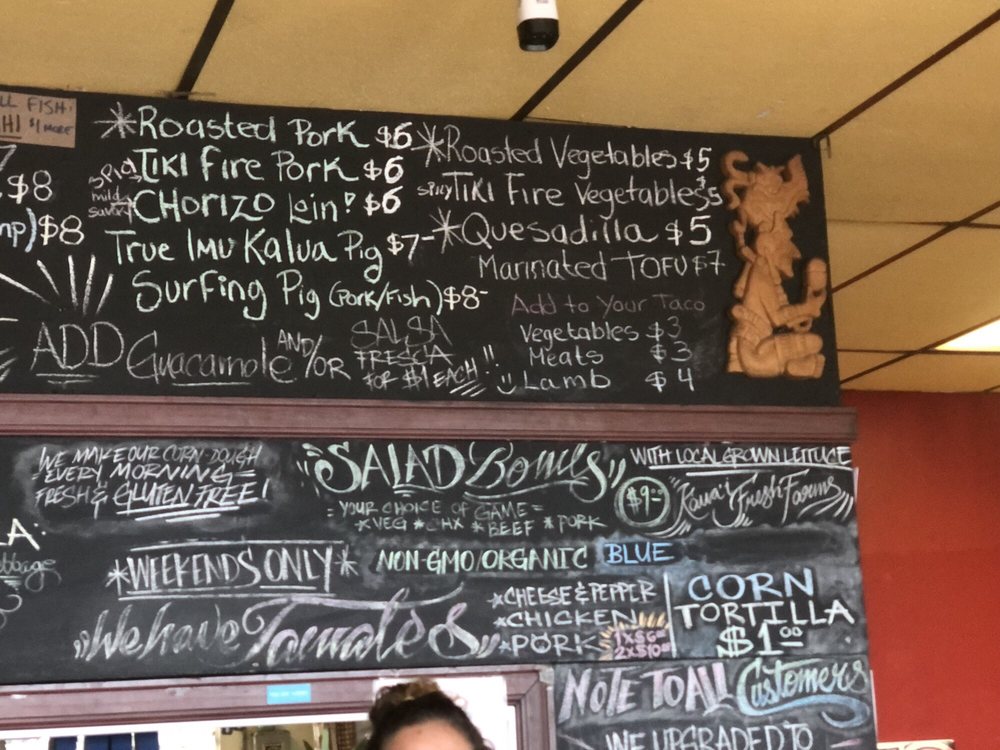 LL FISH:
HI $1 MORE
$8
mp) $8
*Roasted Pork $6
spicy TIKI Fire Pork $6
mild savory CHORIZO Loin! $6
True Imu Kalua Pig $7-
Surfing Pig (Pork/Fish) $8-
*Roasted Vegetables $5
spicy TIKI Fire Vegetables $5
*Quesadilla $5
Marinated TOFU $7
Add to Your Taco
Vegetables $3
Meats $3
Lamb $4
ADD Guacamole AND/OR SALSA FRESCA FOR $1 EACH!!
WE MAKE OUR CORN DOUGH
EVERY MORNING
FRESH & GLUTEN FREE!
"SALAD Bowls"
= YOUR CHOICE OF GAME =
*VEG *CHX *BEEF *PORK
$9.00
WITH LOCAL GROWN LETTUCE
Kaua'i Fresh Farms
LA:
*WEEKENDS ONLY*
"We have Tamales"
NON-GMO/ORGANIC BLUE
CORN
TORTILLA
$1.00
*CHEESE & PEPPER
*CHICKEN
*PORK
1X$6
2X$10
NOTE TO ALL Customers
WE UPGRADED TO